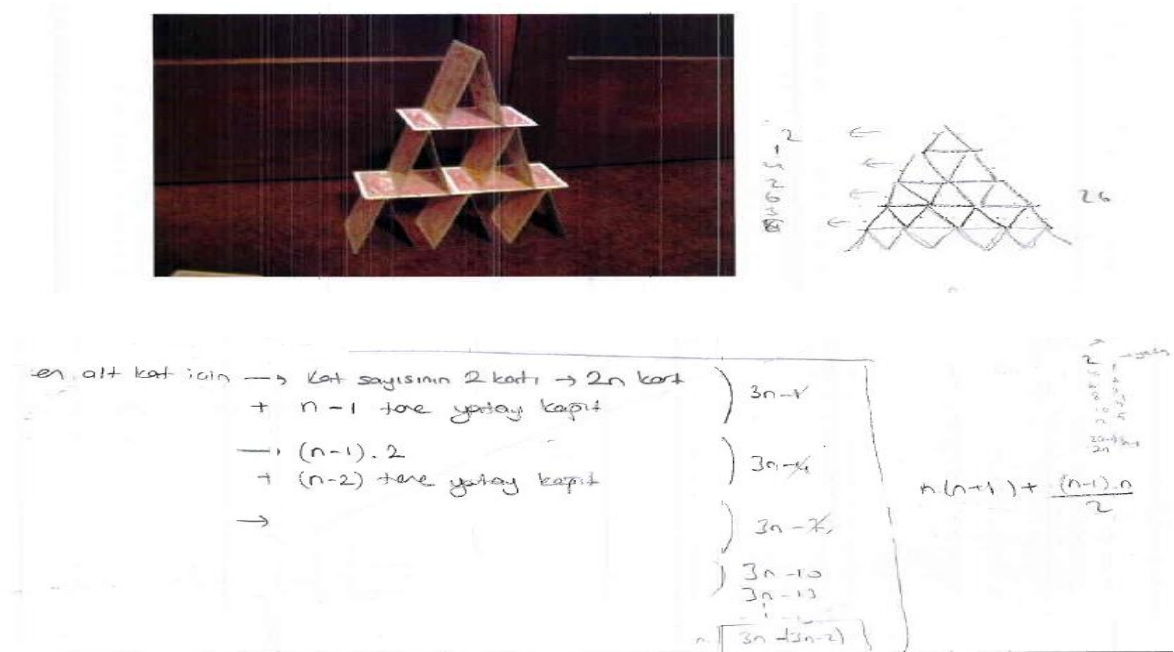 2
26
en alt kat için → kat sayısının 2 katı → 2n kart
+ n-1 tane yatay kağıt
) 3n-1
→ (n-1).2
+ (n-2) tane yatay kağıt
) 3n-4
→
) 3n-7
) 3n-10
3n-13
3n-(3n-2)
n.(n+1) + (n-1).n / 2